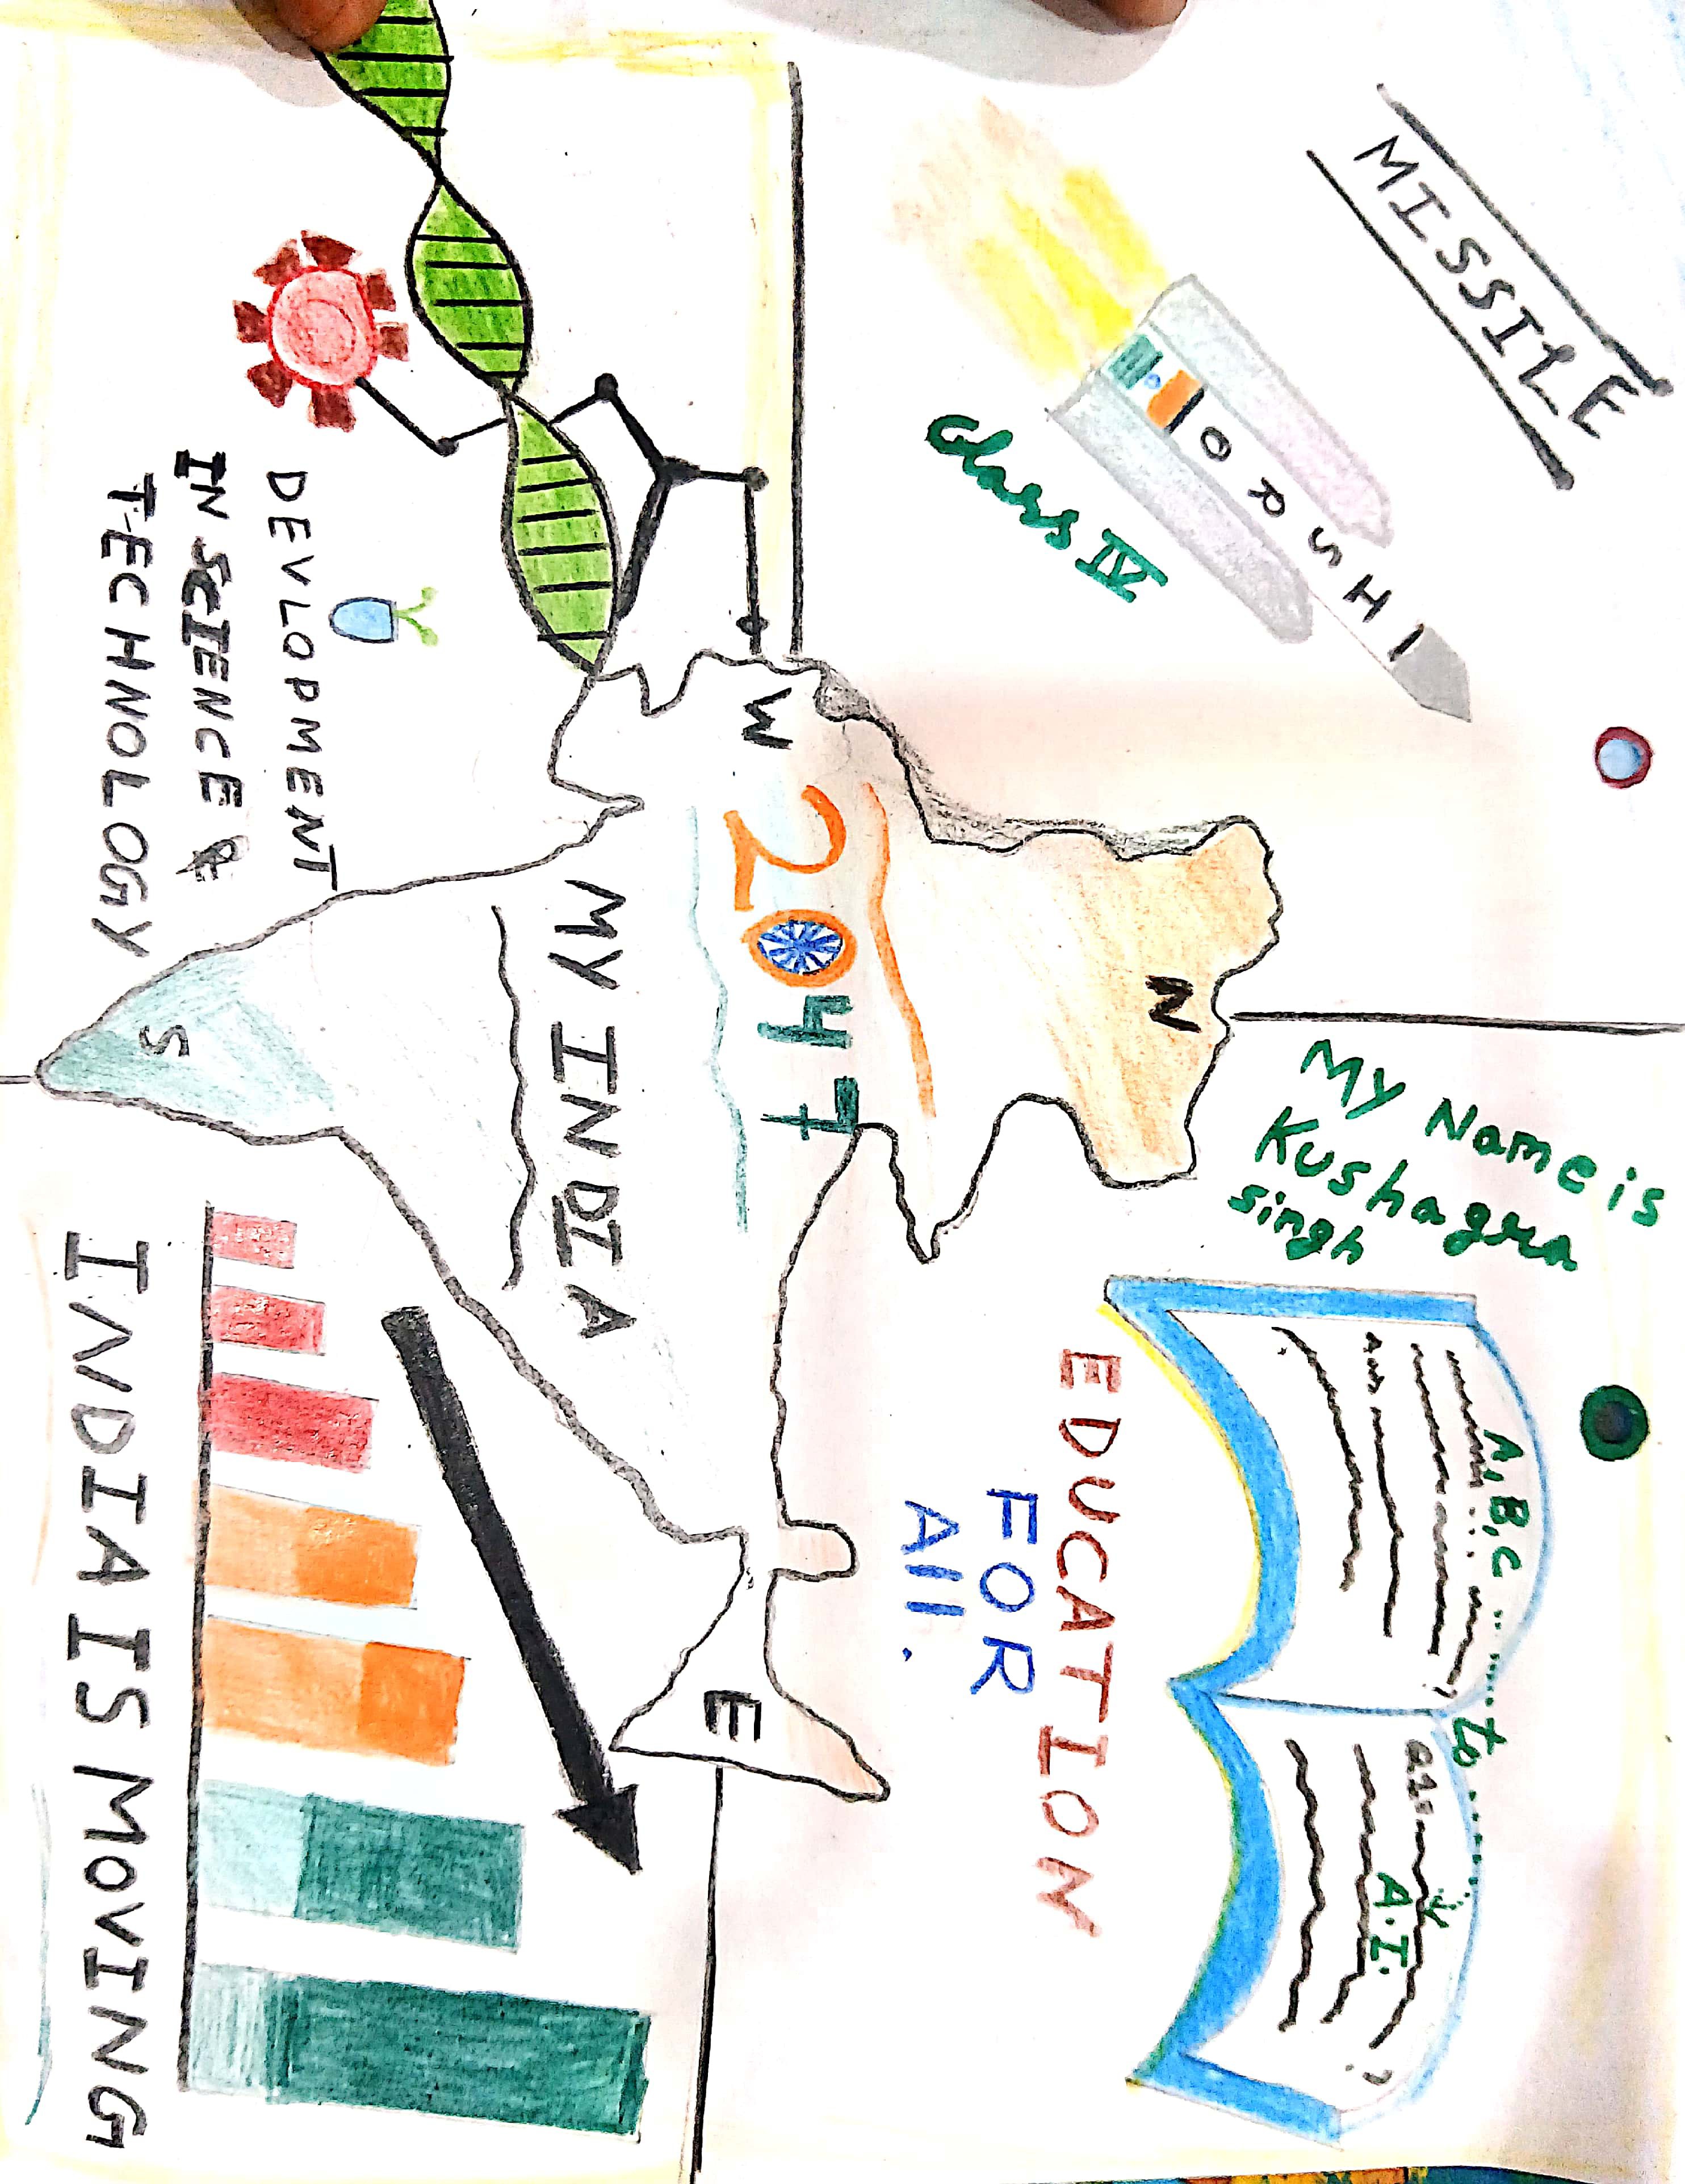 MISSILE
ORSHI
Class IV
My Name is
Kushagra
Singh
A,B,C ... to ....
A.I.
EDUCATION
FOR
All.
N
W
2047
MY INDIA
E
S
DEVLOPMENT
IN SCIENCE &
TECHNOLOGY
INDIA IS MOVING